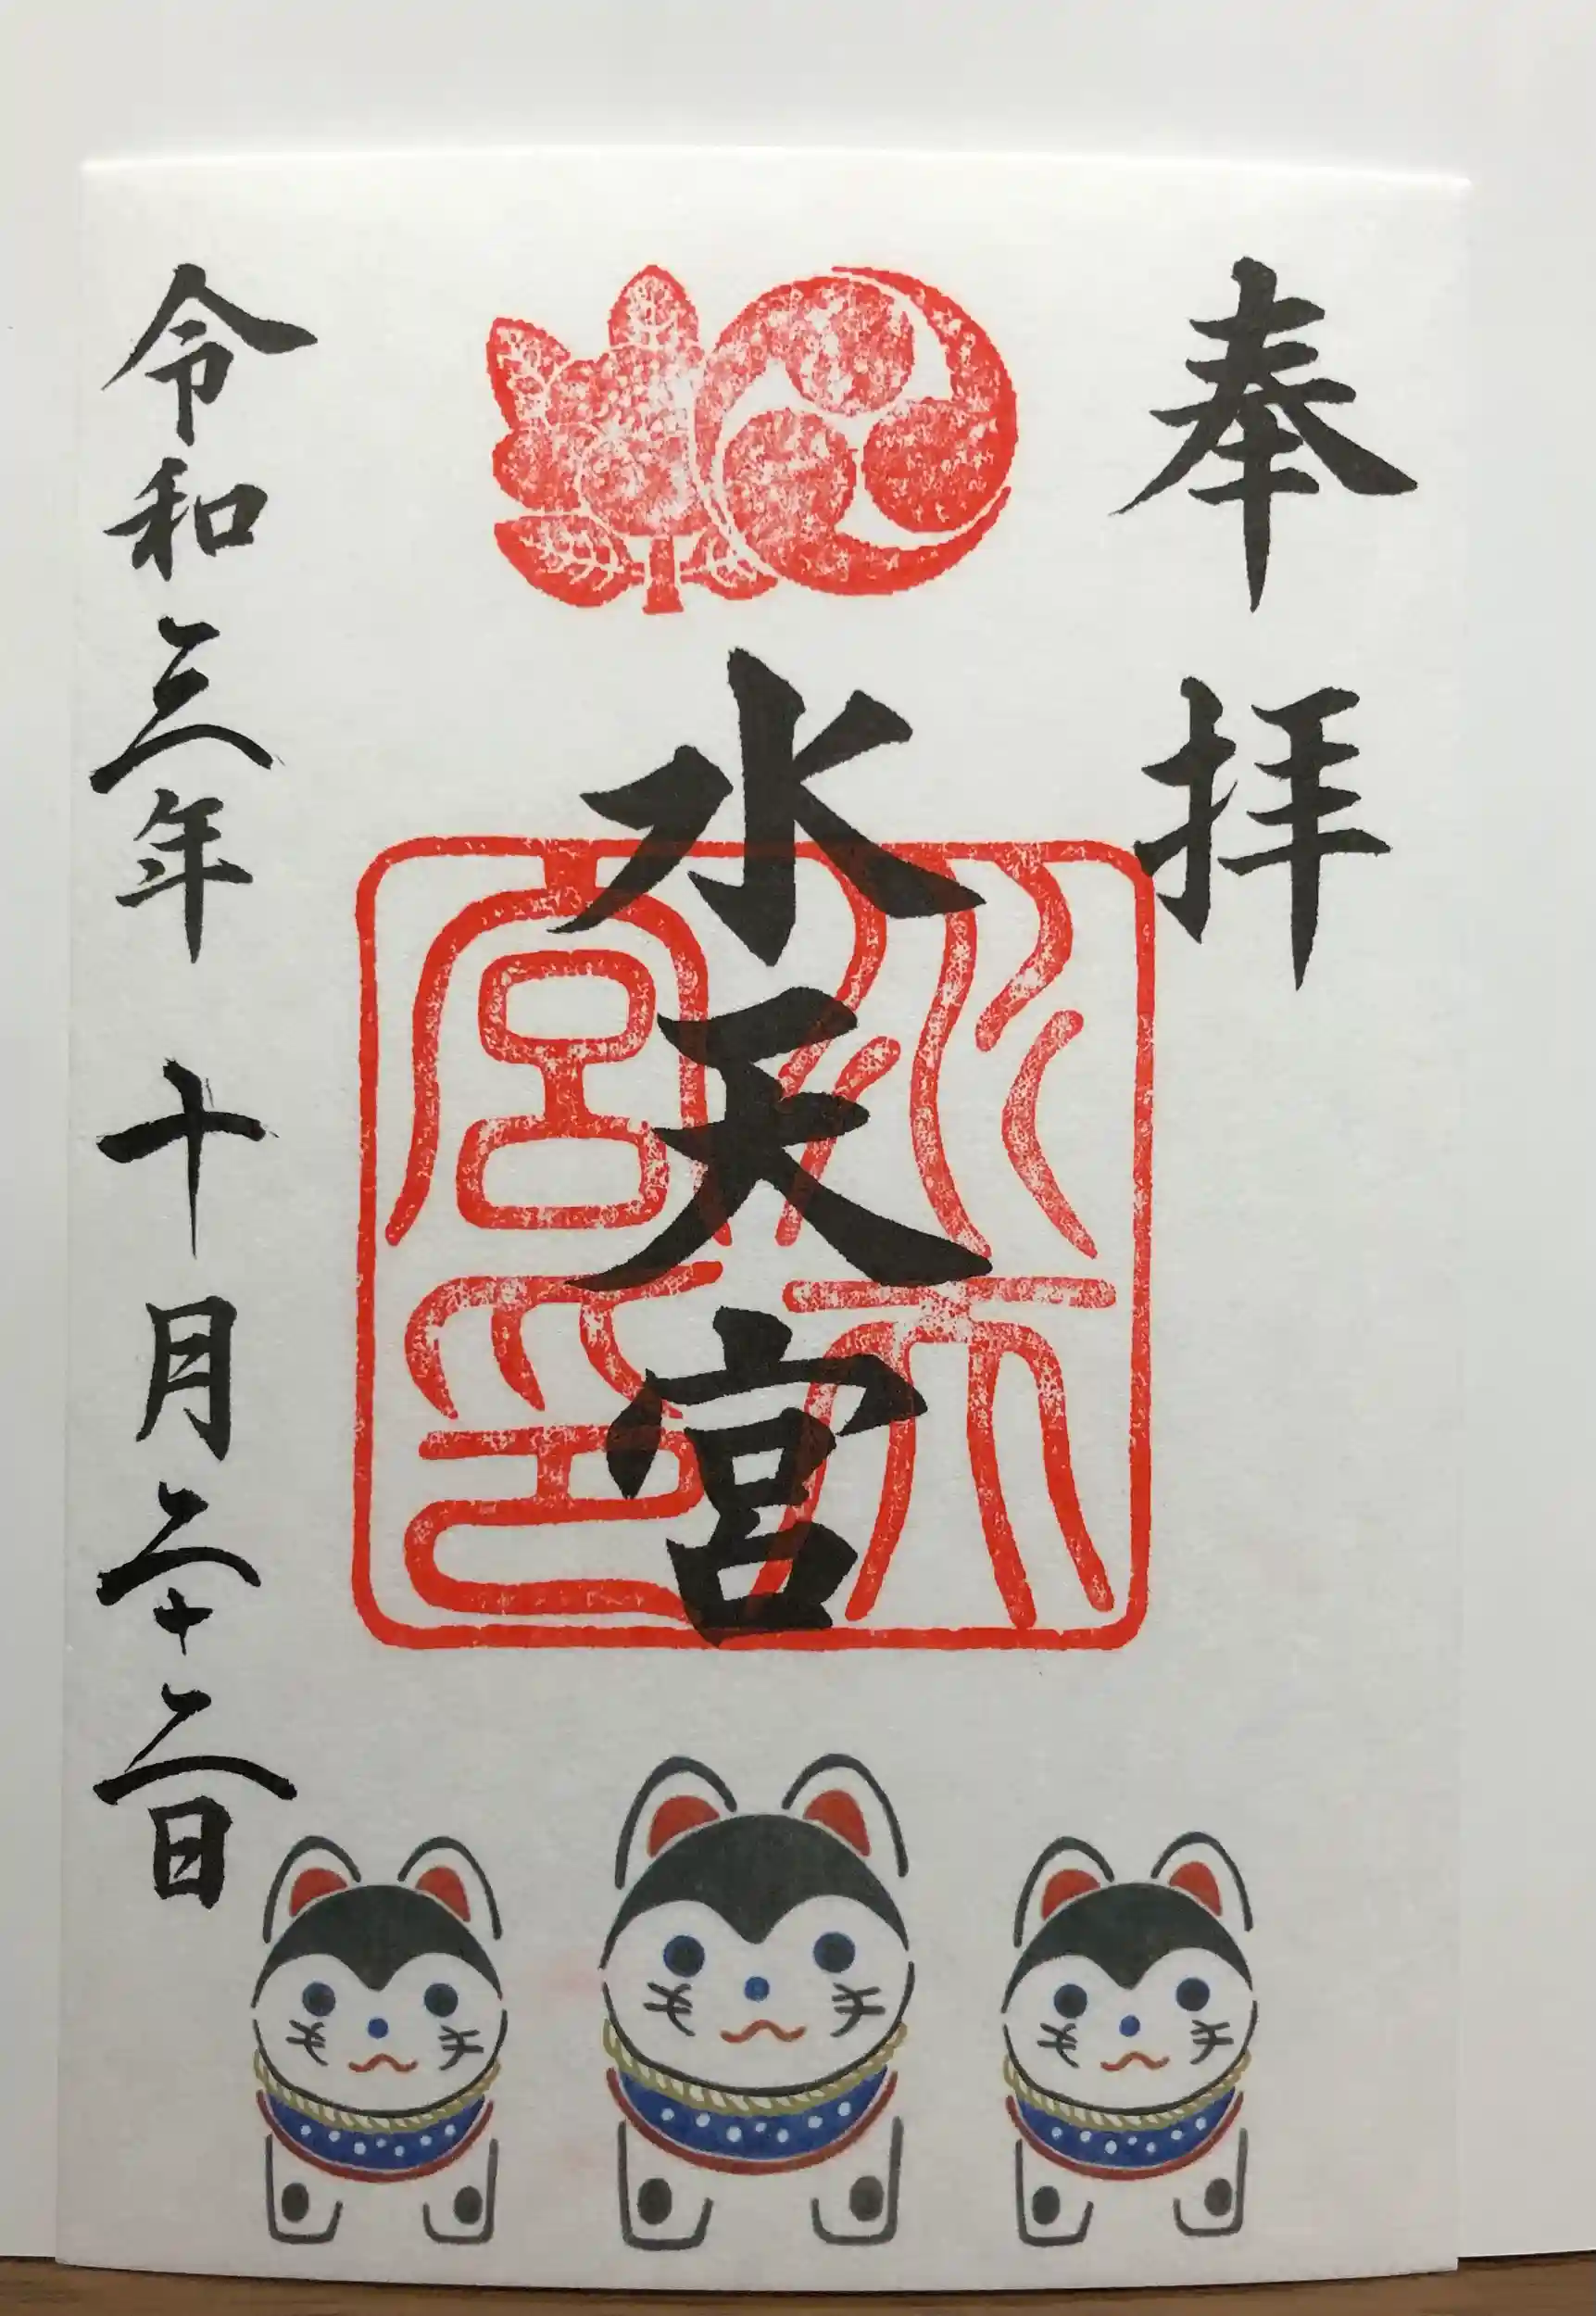 奉拝
水天宮
水天宮印
令和三年十月二十二日